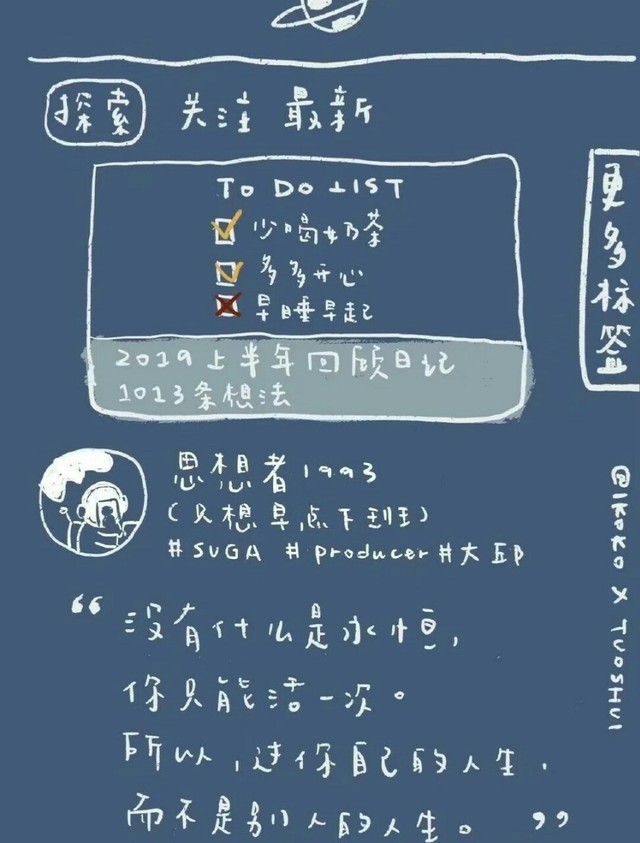 探索 关注 最新
TO DO LIST
少喝奶茶
多多开心
早睡早起
2019上半年回顾日记
1013条想法
更多标签
思想者1993
(只想早点下班)
#SUGA #producer #大邱
@IKOKO X TUOSHUI
“没有什么是永恒,
你只能活一次。
所以,过你自己的人生,
而不是别人的人生。”